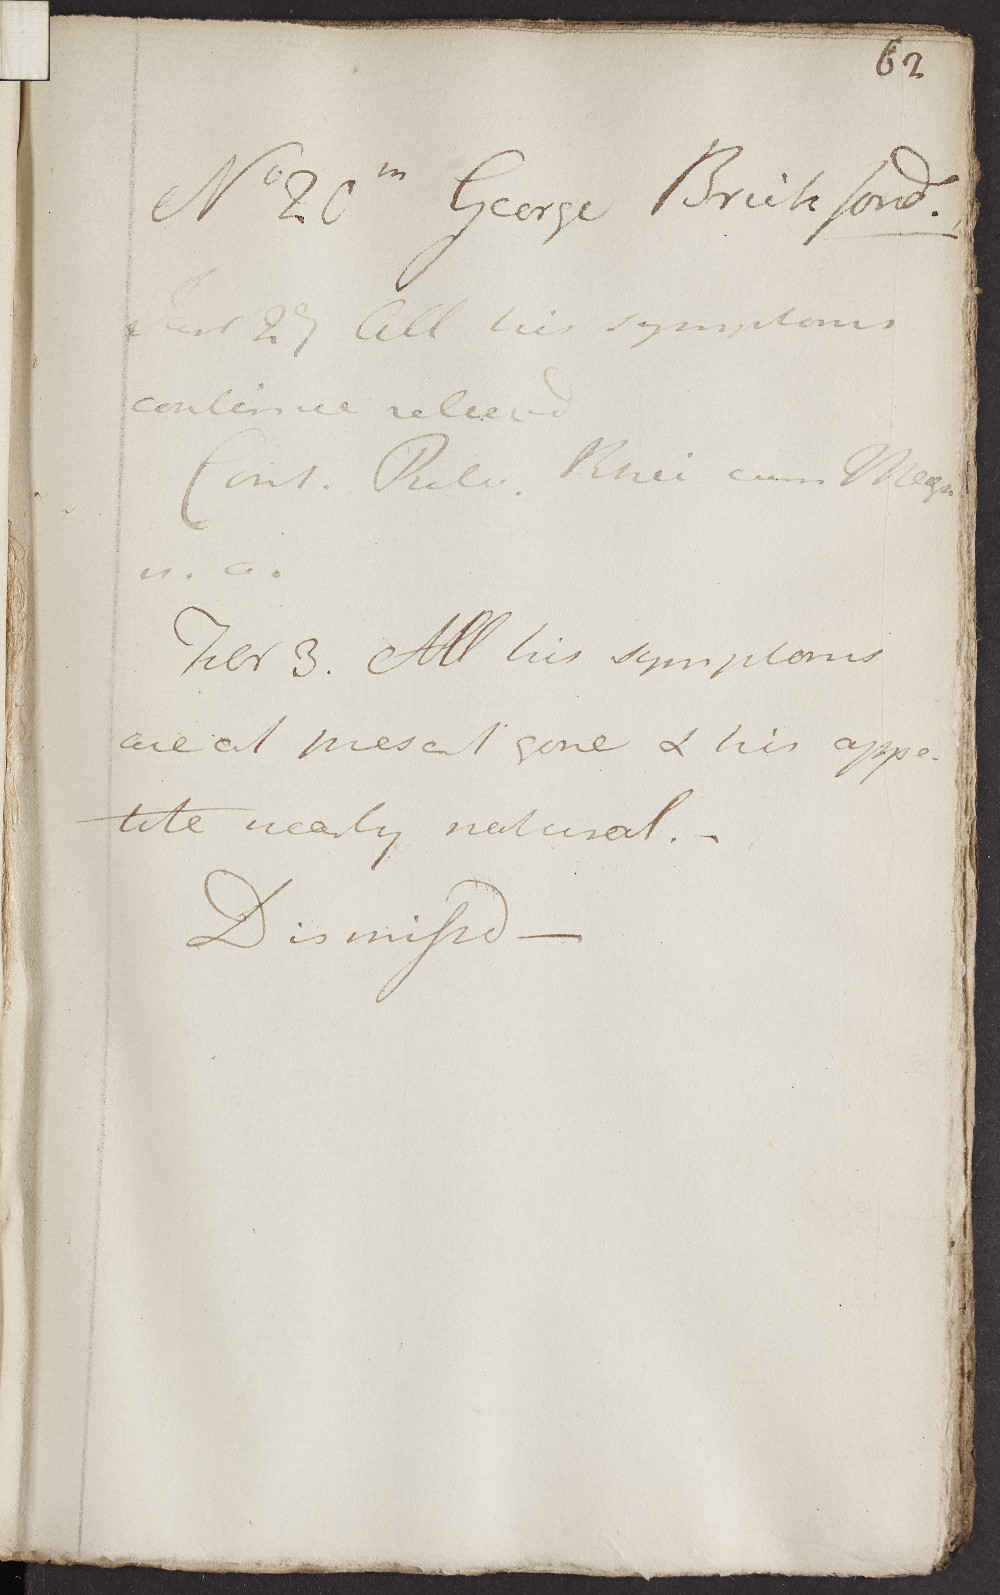 62
No 20 m George Brickford.
Janr 27 All his symptoms
continue relievd
Cont. Pulv. Rhei cum Magn
u. a.
Febr 3. All his symptoms
are at present gone & his appe-
tite nearly natural. —
Dismissd —